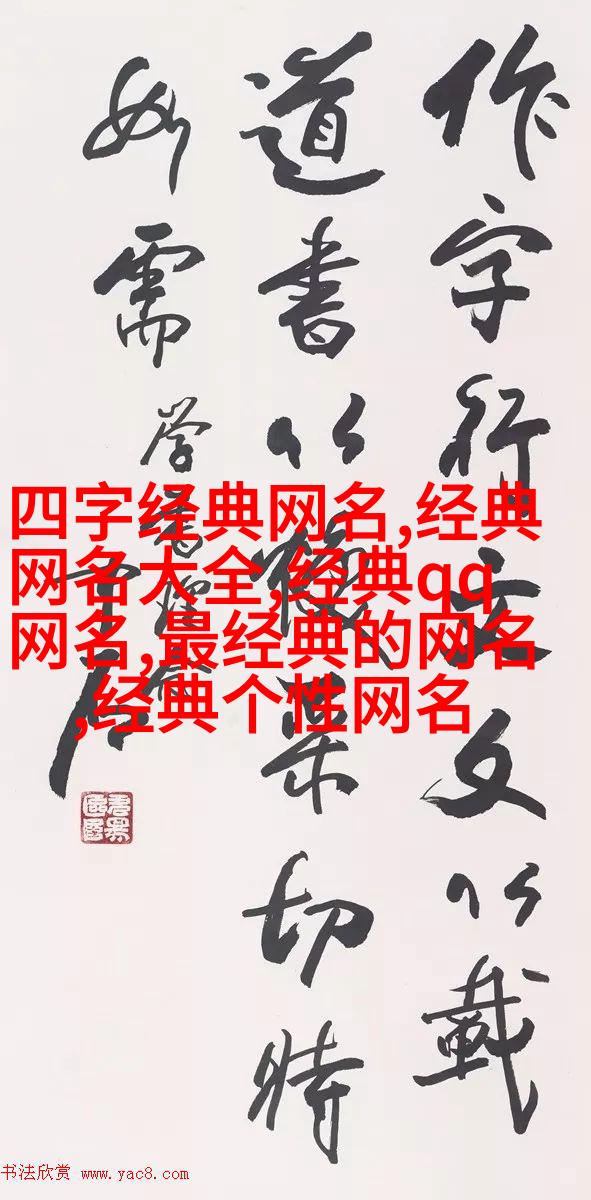 作字行文文以載
道書以采切時
如需
四字经典网名,经典
网名大全,经典qq
网名,最经典的网名
,经典个性网名
书法欣赏 www.yac8.com